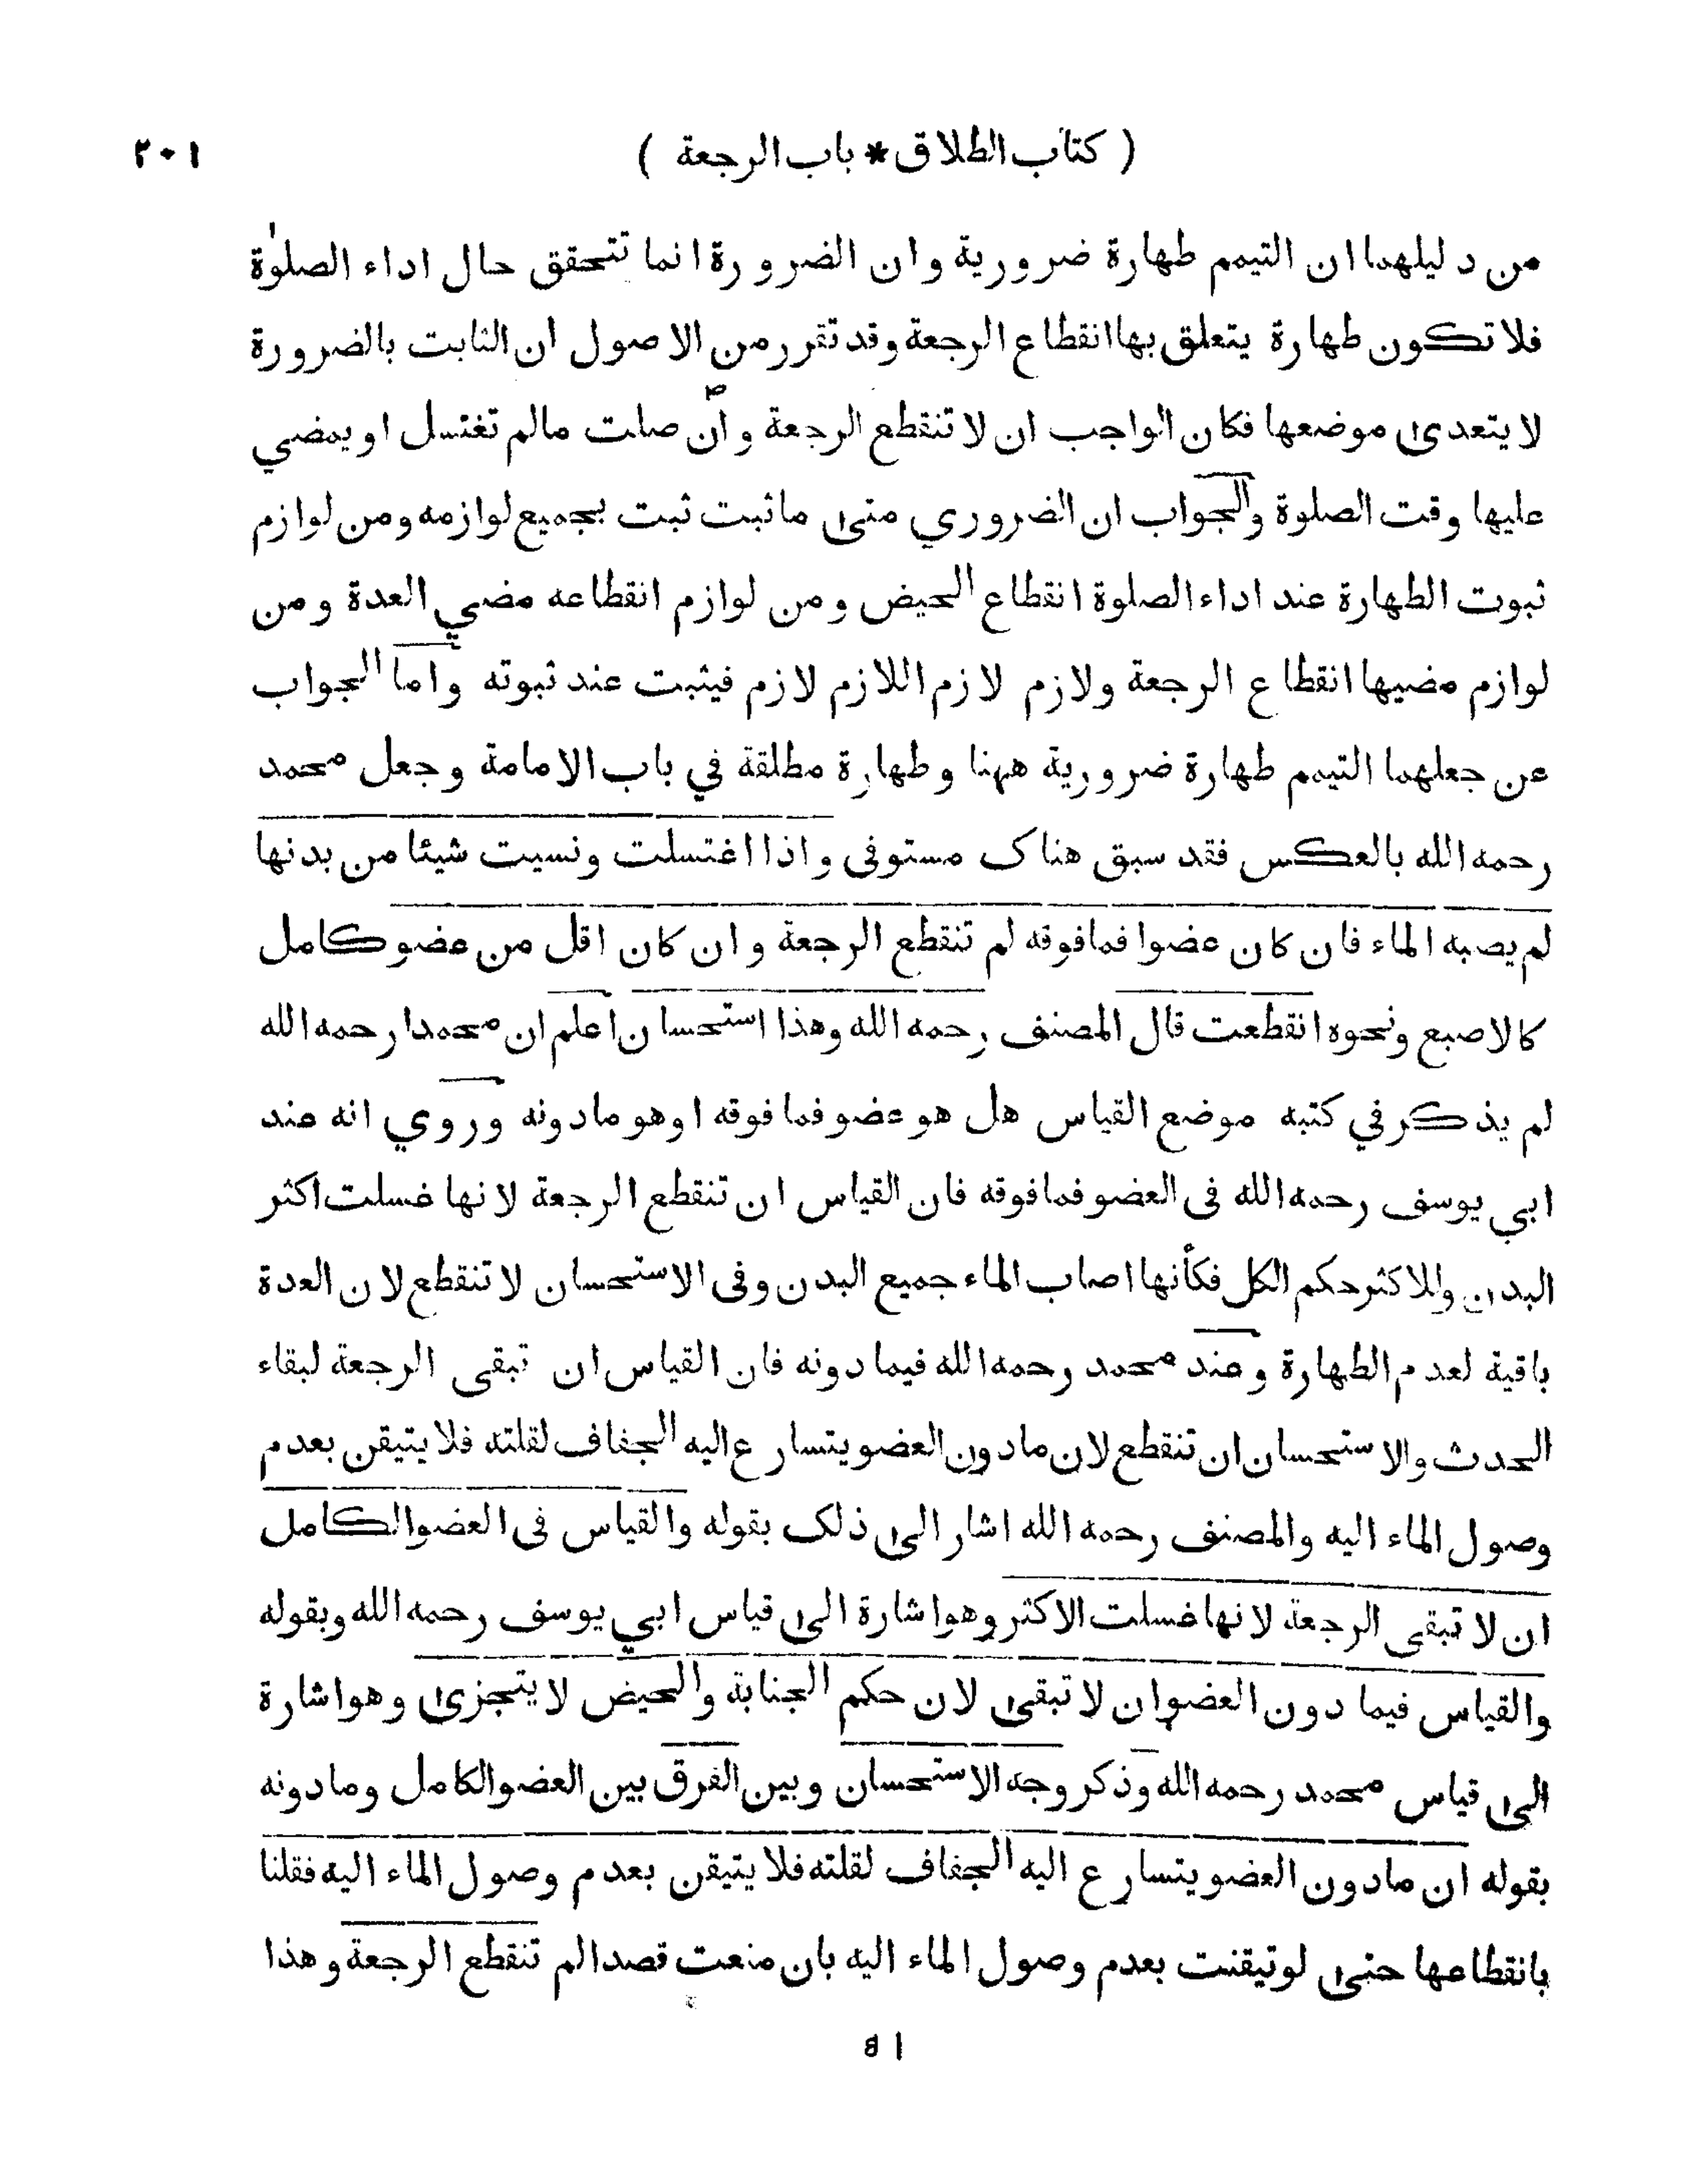 ( كتاب الطلاق * باب الرجعة )
٢٠١
من دليلهما ان التيمم طهارة ضرورية وان الضرورة انما تتحقق حال اداء الصلوة
فلا تكون طهارة يتعلق بها انقطاع الرجعة وقد تقرر من الاصول ان الثابت بالضرورة
لا يتعدى موضعها فكان الواجب ان لا تنقطع الرجعة وان صلت مالم تغتسل او يمضي
عليها وقت الصلوة والجواب ان الضروري متى ما ثبت ثبت بجميع لوازمه ومن لوازم
ثبوت الطهارة عند اداء الصلوة انقطاع الحيض ومن لوازم انقطاعه مضي العدة ومن
لوازم مضيها انقطاع الرجعة ولازم لازم اللازم لازم فيثبت عند ثبوته واما الجواب
عن جعلهما التيمم طهارة ضرورية ههنا وطهارة مطلقة في باب الامامة وجعل محمد
رحمه الله بالعكس فقد سبق هناك مستوفى واذا اغتسلت ونسيت شيئا من بدنها
لم يصبه الماء فان كان عضوا فما فوقه لم تنقطع الرجعة وان كان اقل من عضو كامل
كالاصبع ونحوه انقطعت قال المصنف رحمه الله وهذا استحسان اعلم ان محمدا رحمه الله
لم يذكر في كتبه موضع القياس هل هو عضو فما فوقه او هو ما دونه وروي انه عند
ابي يوسف رحمه الله فى العضو فما فوقه فان القياس ان تنقطع الرجعة لانها غسلت اكثر
البدن وللاكثر حكم الكل فكأنها اصاب الماء جميع البدن وفى الاستحسان لا تنقطع لان العدة
باقية لعدم الطهارة وعند محمد رحمه الله فيما دونه فان القياس ان تبقى الرجعة لبقاء
الحدث والاستحسان ان تنقطع لان ما دون العضو يتسارع اليه الجفاف لقلته فلا يتيقن بعدم
وصول الماء اليه والمصنف رحمه الله اشار الى ذلك بقوله والقياس فى العضو الكامل
ان لا تبقى الرجعة لانها غسلت الاكثر وهو اشارة الى قياس ابي يوسف رحمه الله وبقوله
والقياس فيما دون العضو ان لا تبقى لان حكم الجنابة والحيض لا يتجزى وهو اشارة
الى قياس محمد رحمه الله وذكر وجه الاستحسان وبين الفرق بين العضو الكامل وما دونه
بقوله ان ما دون العضو يتسارع اليه الجفاف لقلته فلا يتيقن بعدم وصول الماء اليه فقلنا
بانقطاعها حتى لو تيقنت بعدم وصول الماء اليه بان منعت قصدا لم تنقطع الرجعة وهذا